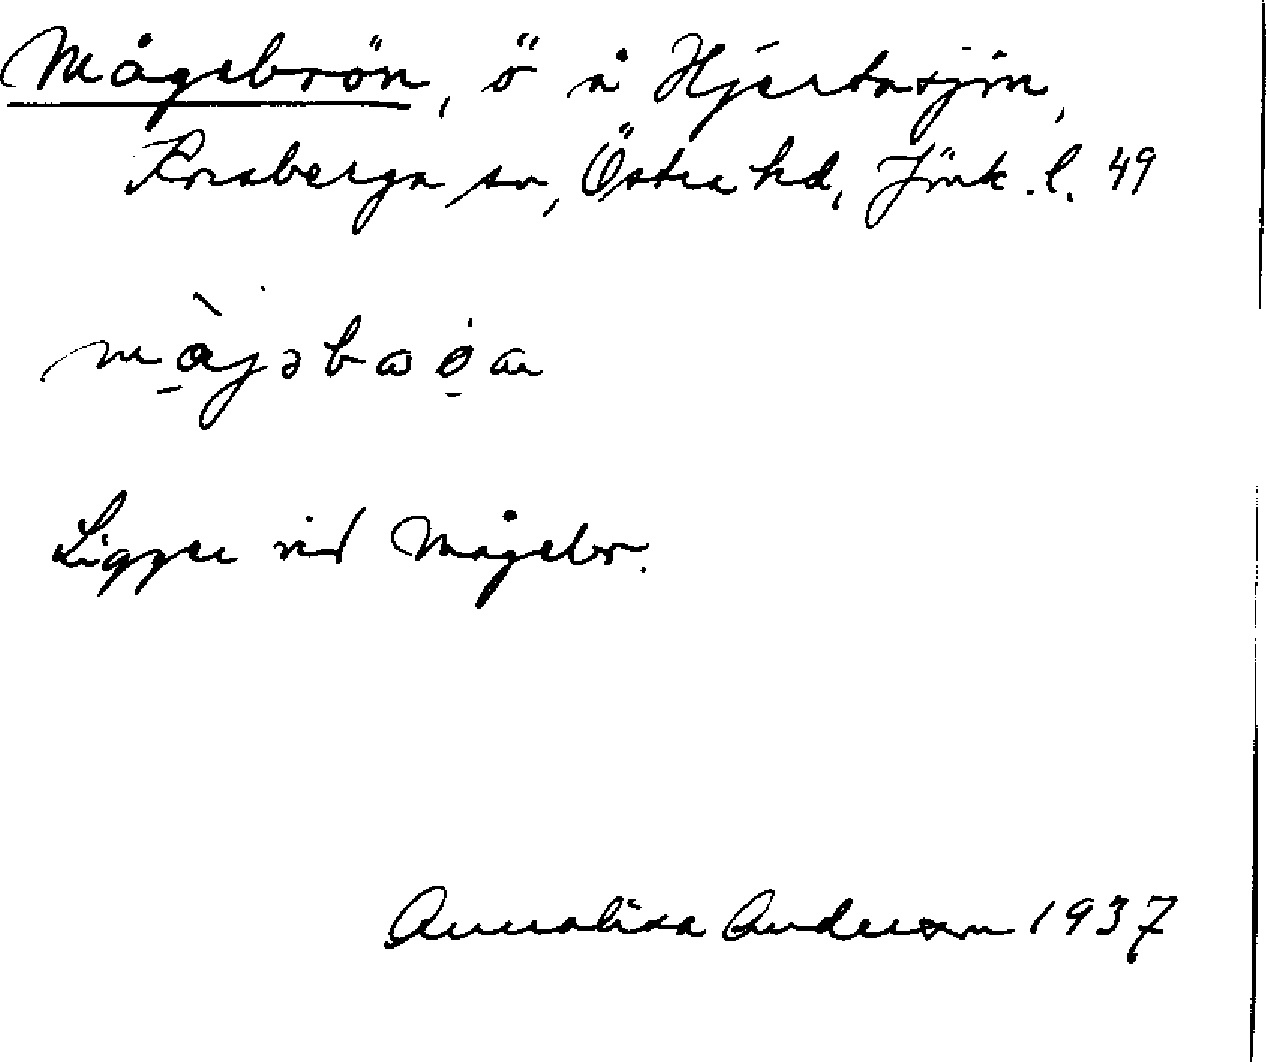 Mågebrön, ö i Hjertasjön,
Korsberga sn, Östra hd, Jönk. l. 49
Ligger vid Mågebr.
Annalisa Anderson 1937